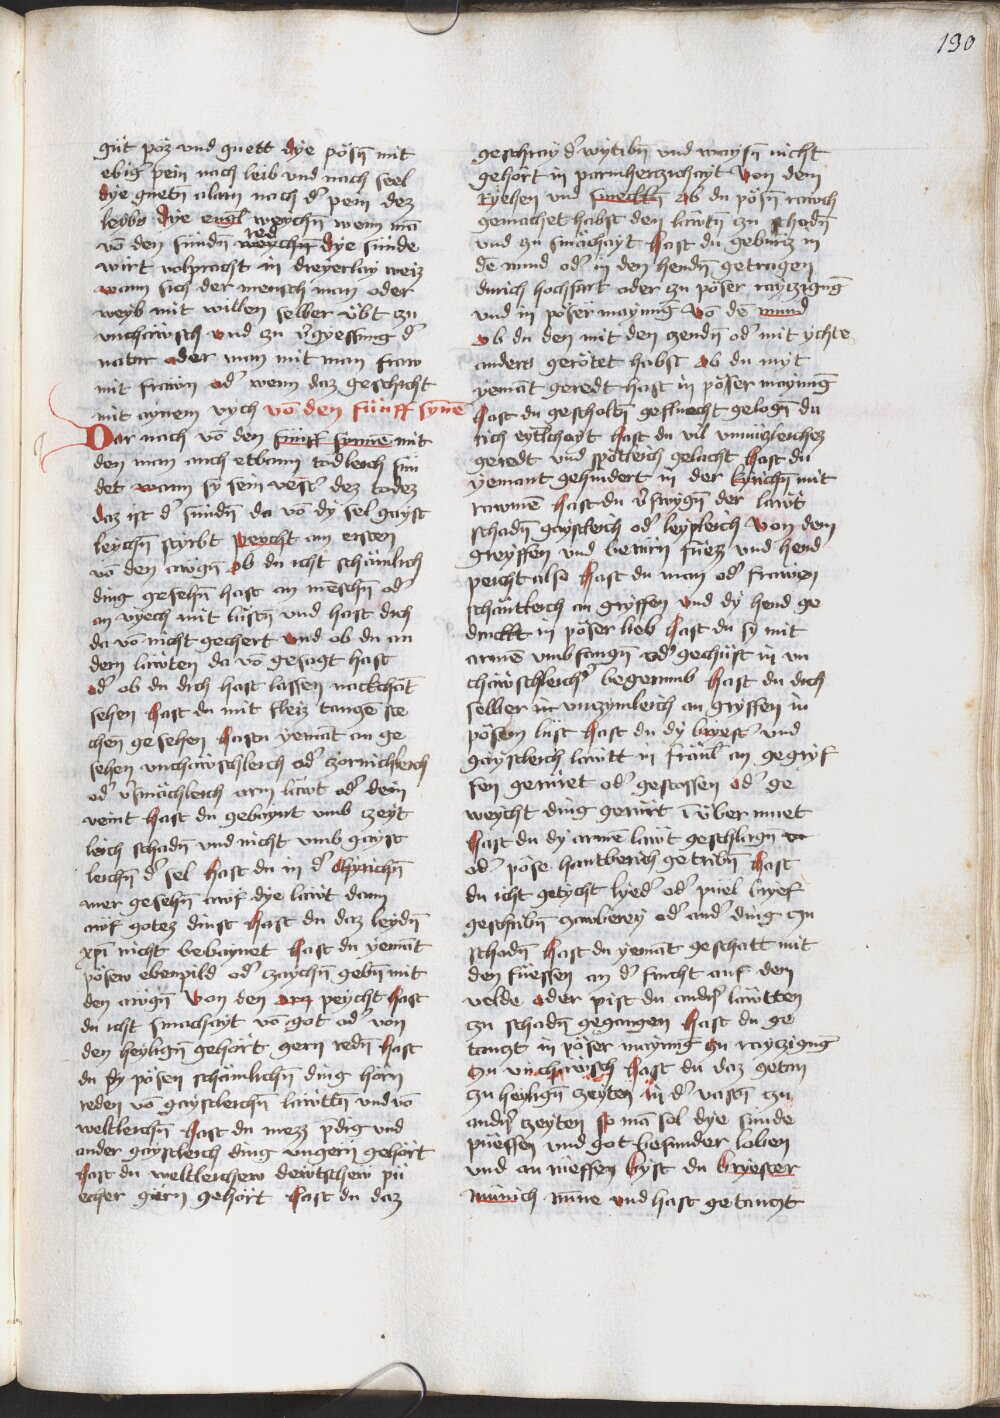 190
güt pöz vnd guett dye pösn̄ mit
ebig̾ pein nach leib vnd nach seel
dye guetn̄ alain nach d̾ pein dez
leybs dye engl̄ weychn̄ wenn mā
vō den sündn̄ red weychn̄ dye sünde
wirt volpracht in dreyerlay weiz
wann sich der mensch man oder
weyb mit willen selber übt zu
vnchäwsch vnd zu v̾gyessung d̾
natur oder man mit man fraw
mit frawn od̾ wenn daz geschicht
mit aynem vych vō den fünff synē
Dar nach vō den fünff synnē mit
den man auch etbann tödleich sün
det wann sy sein venst̾ dez todez
daz ist d̾ sündn̄ da vō dy sel gayst
leychn̄ styrbt peycht am ersten
vō den awgn̄ ob du icht schämlich
ding gesehn̄ hast an mēschn̄ od̾
an vyech mit lüstn̄ vnd hast dich
da vō nicht gechert vnd ob du an
dern läwten da vō gesagt hast
od̾ ob du dich hast lassen nackchāt
sehen hast du mit fleiz tancze ste
chen̄ gesehen hastu yemāt an ge
sehen vnchäwschleich od̾ zornichleich
od̾ v̾smächleich arm läwt od̾ dein
veint hast du gebaynt vmb czeyt
leich schadn̄ vnd nicht vmb gayst
leichn̄ d̾ sel hast du in d̾ chyrichn̄
mer gesehn̄ awf dye läwt dann
awf gotez dinst hast du daz leydn̄
xp̄i nicht bebaynet hast du yemāt
pösew ebenpild od̾ czaychn̄ gebn̄ mit
den awgn̄ Von den orn peycht hast
du icht smachayt vō got od̾ von
den heylign̄ gehört gern redn̄ hast
du dy pösen schämlichn̄ ding hörn
reden vō gaystleichn̄ läwttn̄ vnd vō
weltleichn̄ hast du mezz pdig vnd
ander gaystleich ding vngern gehört
hast du weltleichew dewtschew pü
echer gern gehört hast du daz
geschray d̾ wytibn̄ vnd waysn̄ nicht
gehört in parmherczichayt Von dem
ryehen vnd smeckn̄ ob du pösn̄ rawch
gemachet habst den läwtn̄ zu schadn̄
vnd zu smächayt hast du geburcz in
dē mund od̾ in den hendn̄ getragen
durich hochfart oder zu pöser raytzigūg
vnd in pöser maynūg Vō dē mund
ob du den mit den zendn̄ od̾ mit ychte
anders gerötet habst ob du myt
yemāt geredt hast in pöser maynūg
hast du gescholtn̄ gefluecht gelogn̄ du
rich eytlchayt hast du vil vnnucleichez
geredt vnd spötleich gelacht hast du
yemant gehindert in der kyrichn̄ mit
rawmē hast du v̾swygn̄ der läwt
schadn̄ gaystleich od̾ leypleich Von dem
greyffen vnd berürn füez vnd hend
peicht also hast du man od̾ frawen
schäntleich an gryffen vnd dy hend ge
druckt in pöser lieb hast du sy mit
armē vmbfangn̄ od̾ gechüst in vn
chäwschleich̾ begernub hast du dich
selber in vnczymleich an gryffen in
pösem lüst hast du dy bryest̾ vnd
gaystleich läwtt in fräul̄ an gegryf
fen gerüret od̾ gestossen od̾ ge
weycht ding gerürt ī über muet
hast du dy arme läwt geschlagn̄
od̾ pöse hantberich getribn̄ hast
du icht getycht lyed̾ od̾ püel bryef
geschribn̄ zawberey od̾ and̾ ding zu
schadn̄ hast du yemāt geschatt mit
den füessen an d̾ frucht auf dem
velde oder pist du and̾n̄ läwtten
zu schadn̄ gegangen hast du ge
tanczt in pöser maynūg zu raytzigūg
zu vnchawsch hast du daz getan
zu heylign̄ czeyten in d̾ vastn̄ czu
and̾n̄ czeyten so mā sol dye sünde
püessen vnd got besunder loben
vnd an rüeffen byst du bryester
münich nūne vnd hast getanczt